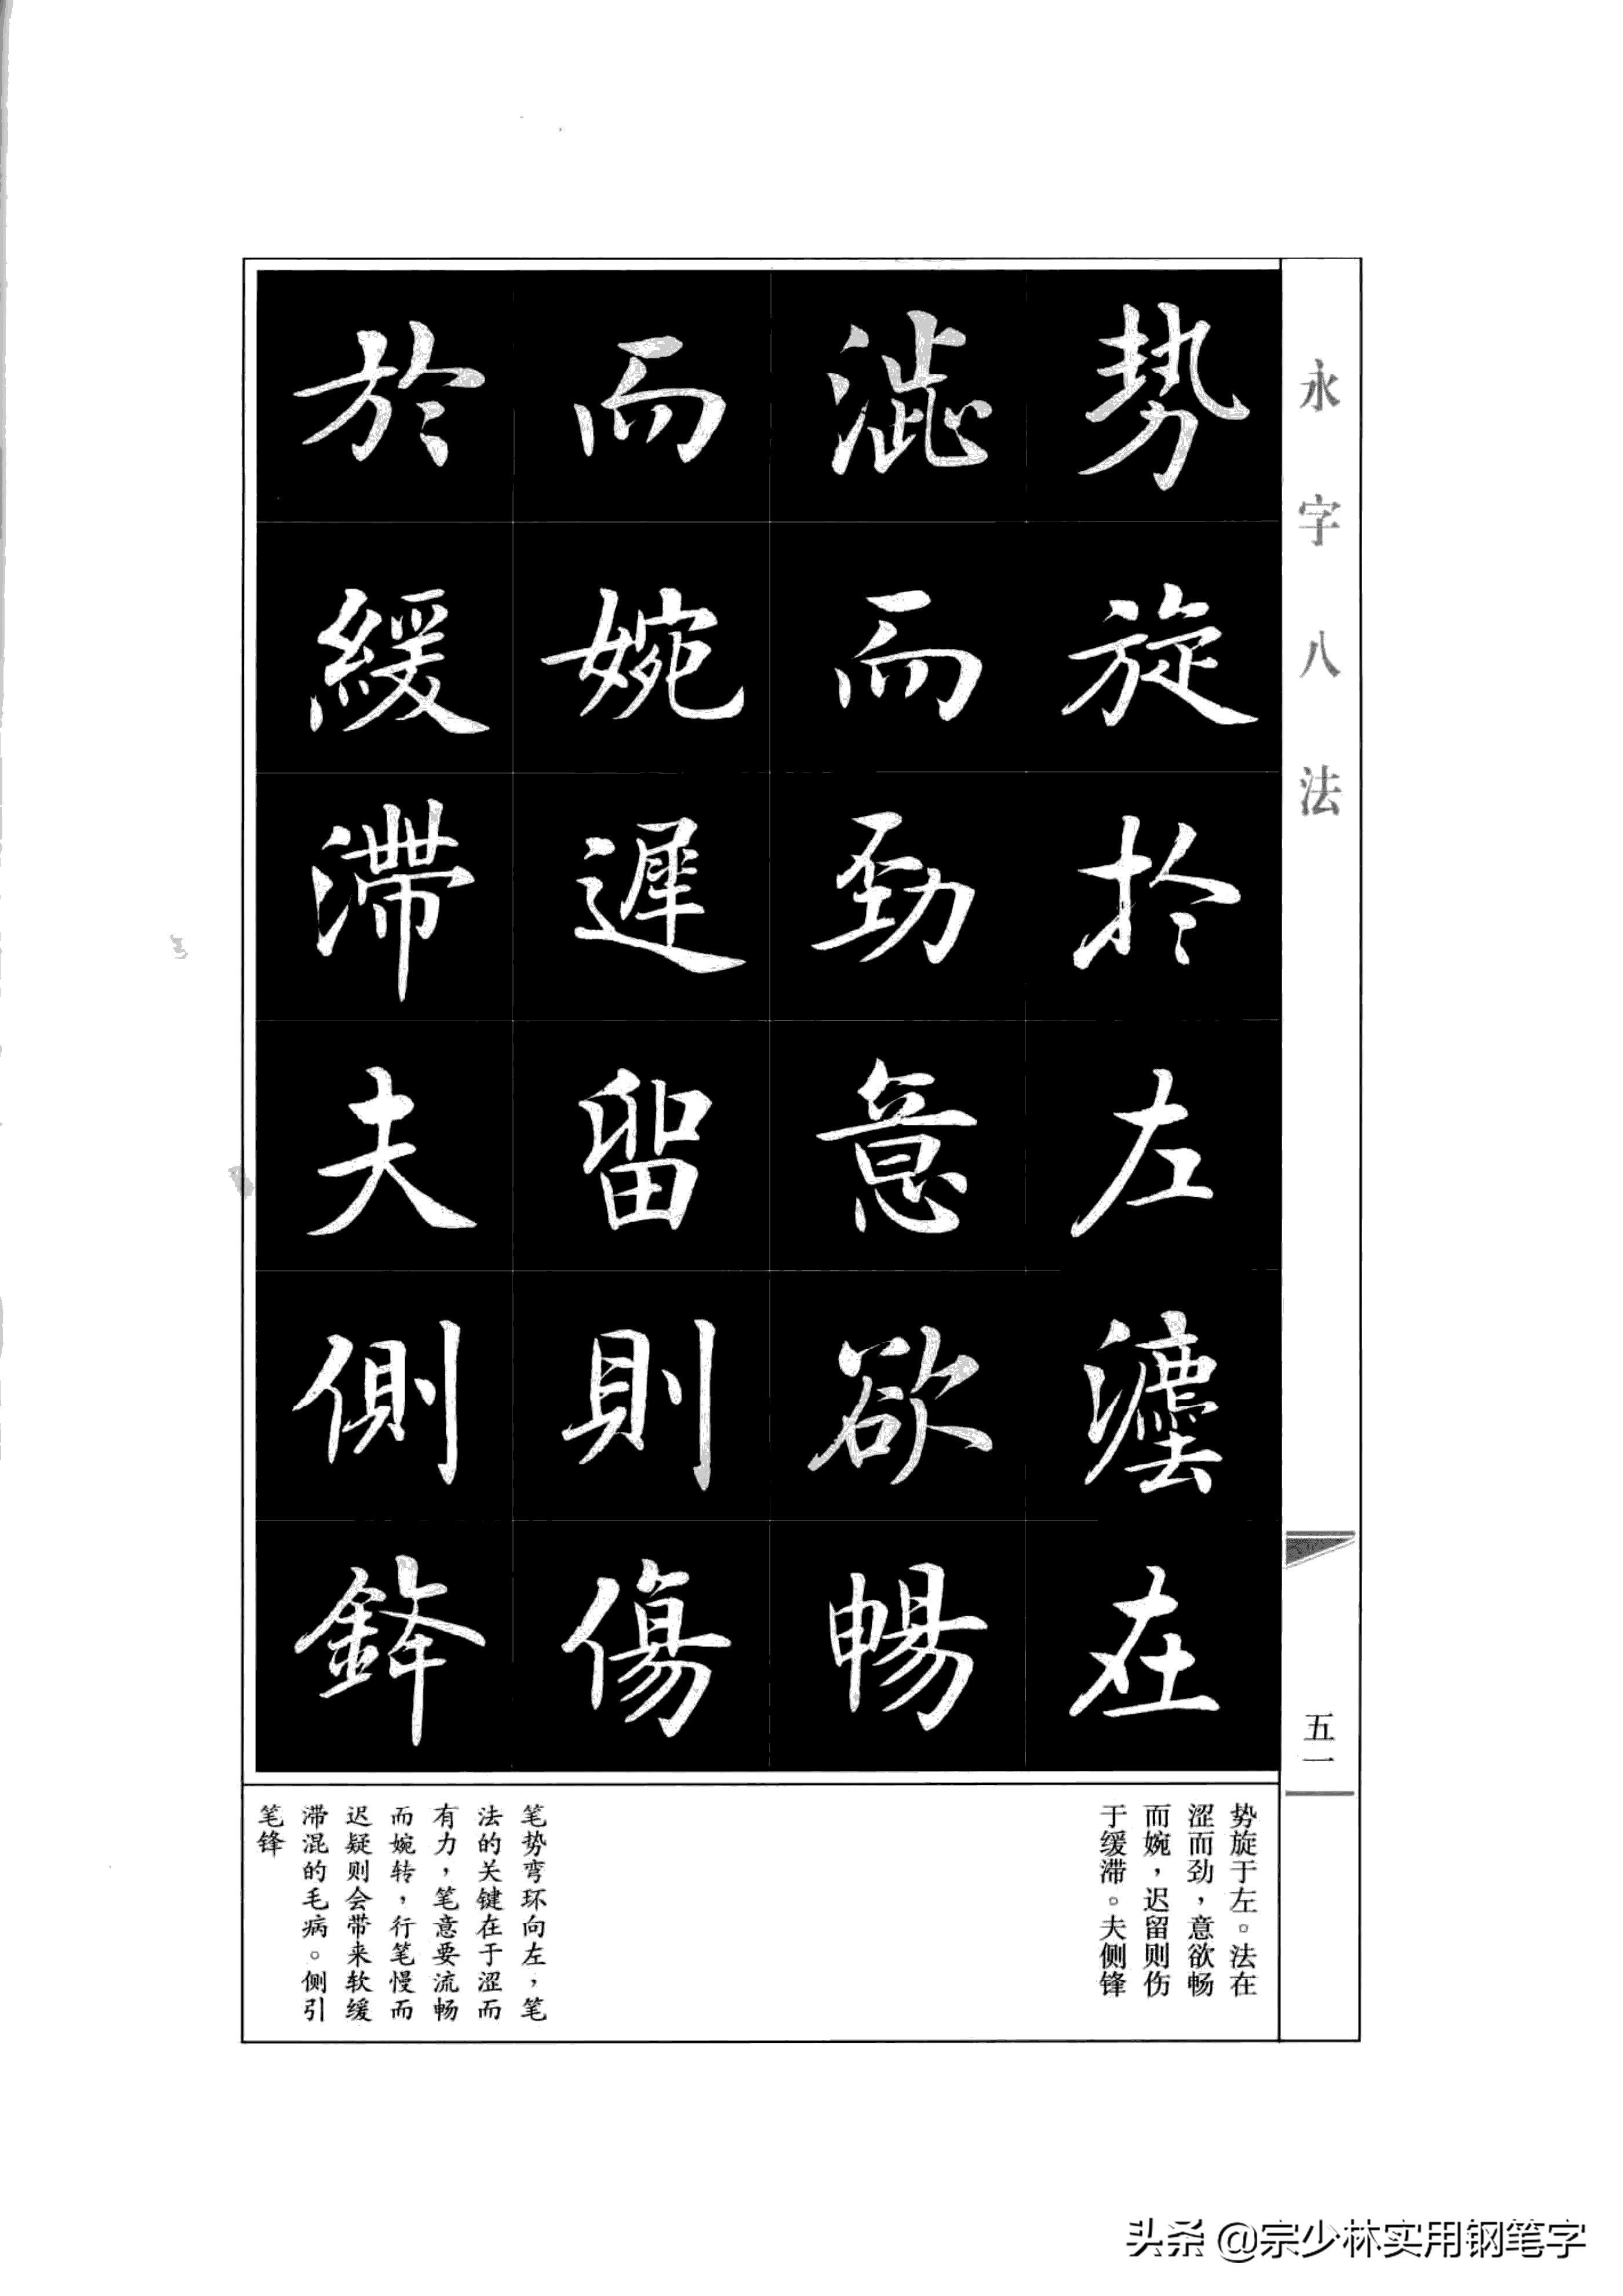 永字八法
五一
势旋於左灋在
澁而劲意欲暢
而婉遲留則傷
於緩滯夫側鋒
势旋于左。法在
涩而劲，意欲畅
而婉，迟留则伤
于缓滞。夫侧锋
笔势弯环向左，笔
法的关键在于涩而
有力，笔意要流畅
而婉转，行笔慢而
迟疑则会带来软缓
滞混的毛病。侧引
笔锋
头条 @宗少林实用钢笔字